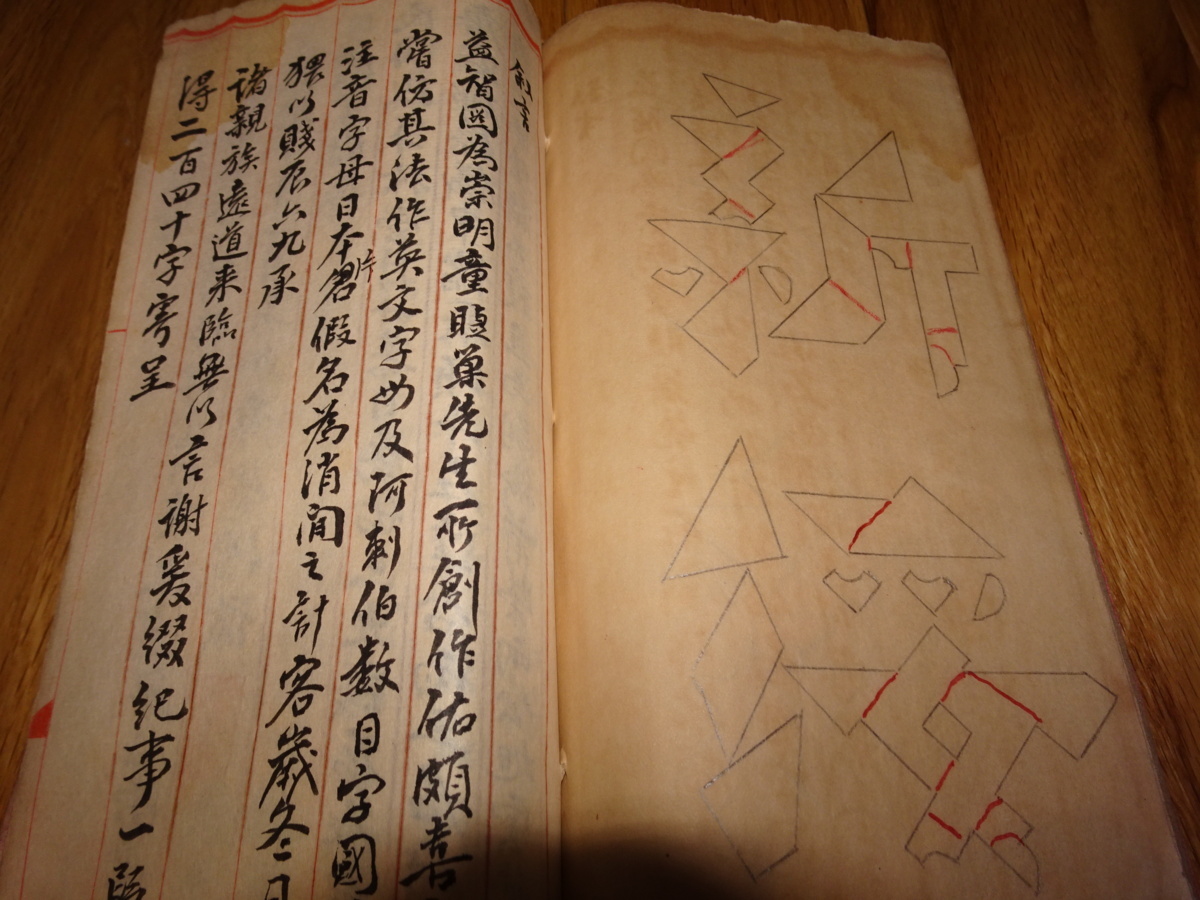 敘言
益智圖為崇明童𠀾巢先生所創作佑頗喜
嘗仿其法作英文字母及阿剌伯數目字國
注音字母日本片假名為消閒之計客歲冬二月
猥以賤辰六九承
諸親族遠道来臨無以言謝爰綴紀事一
得二百四十字寄呈